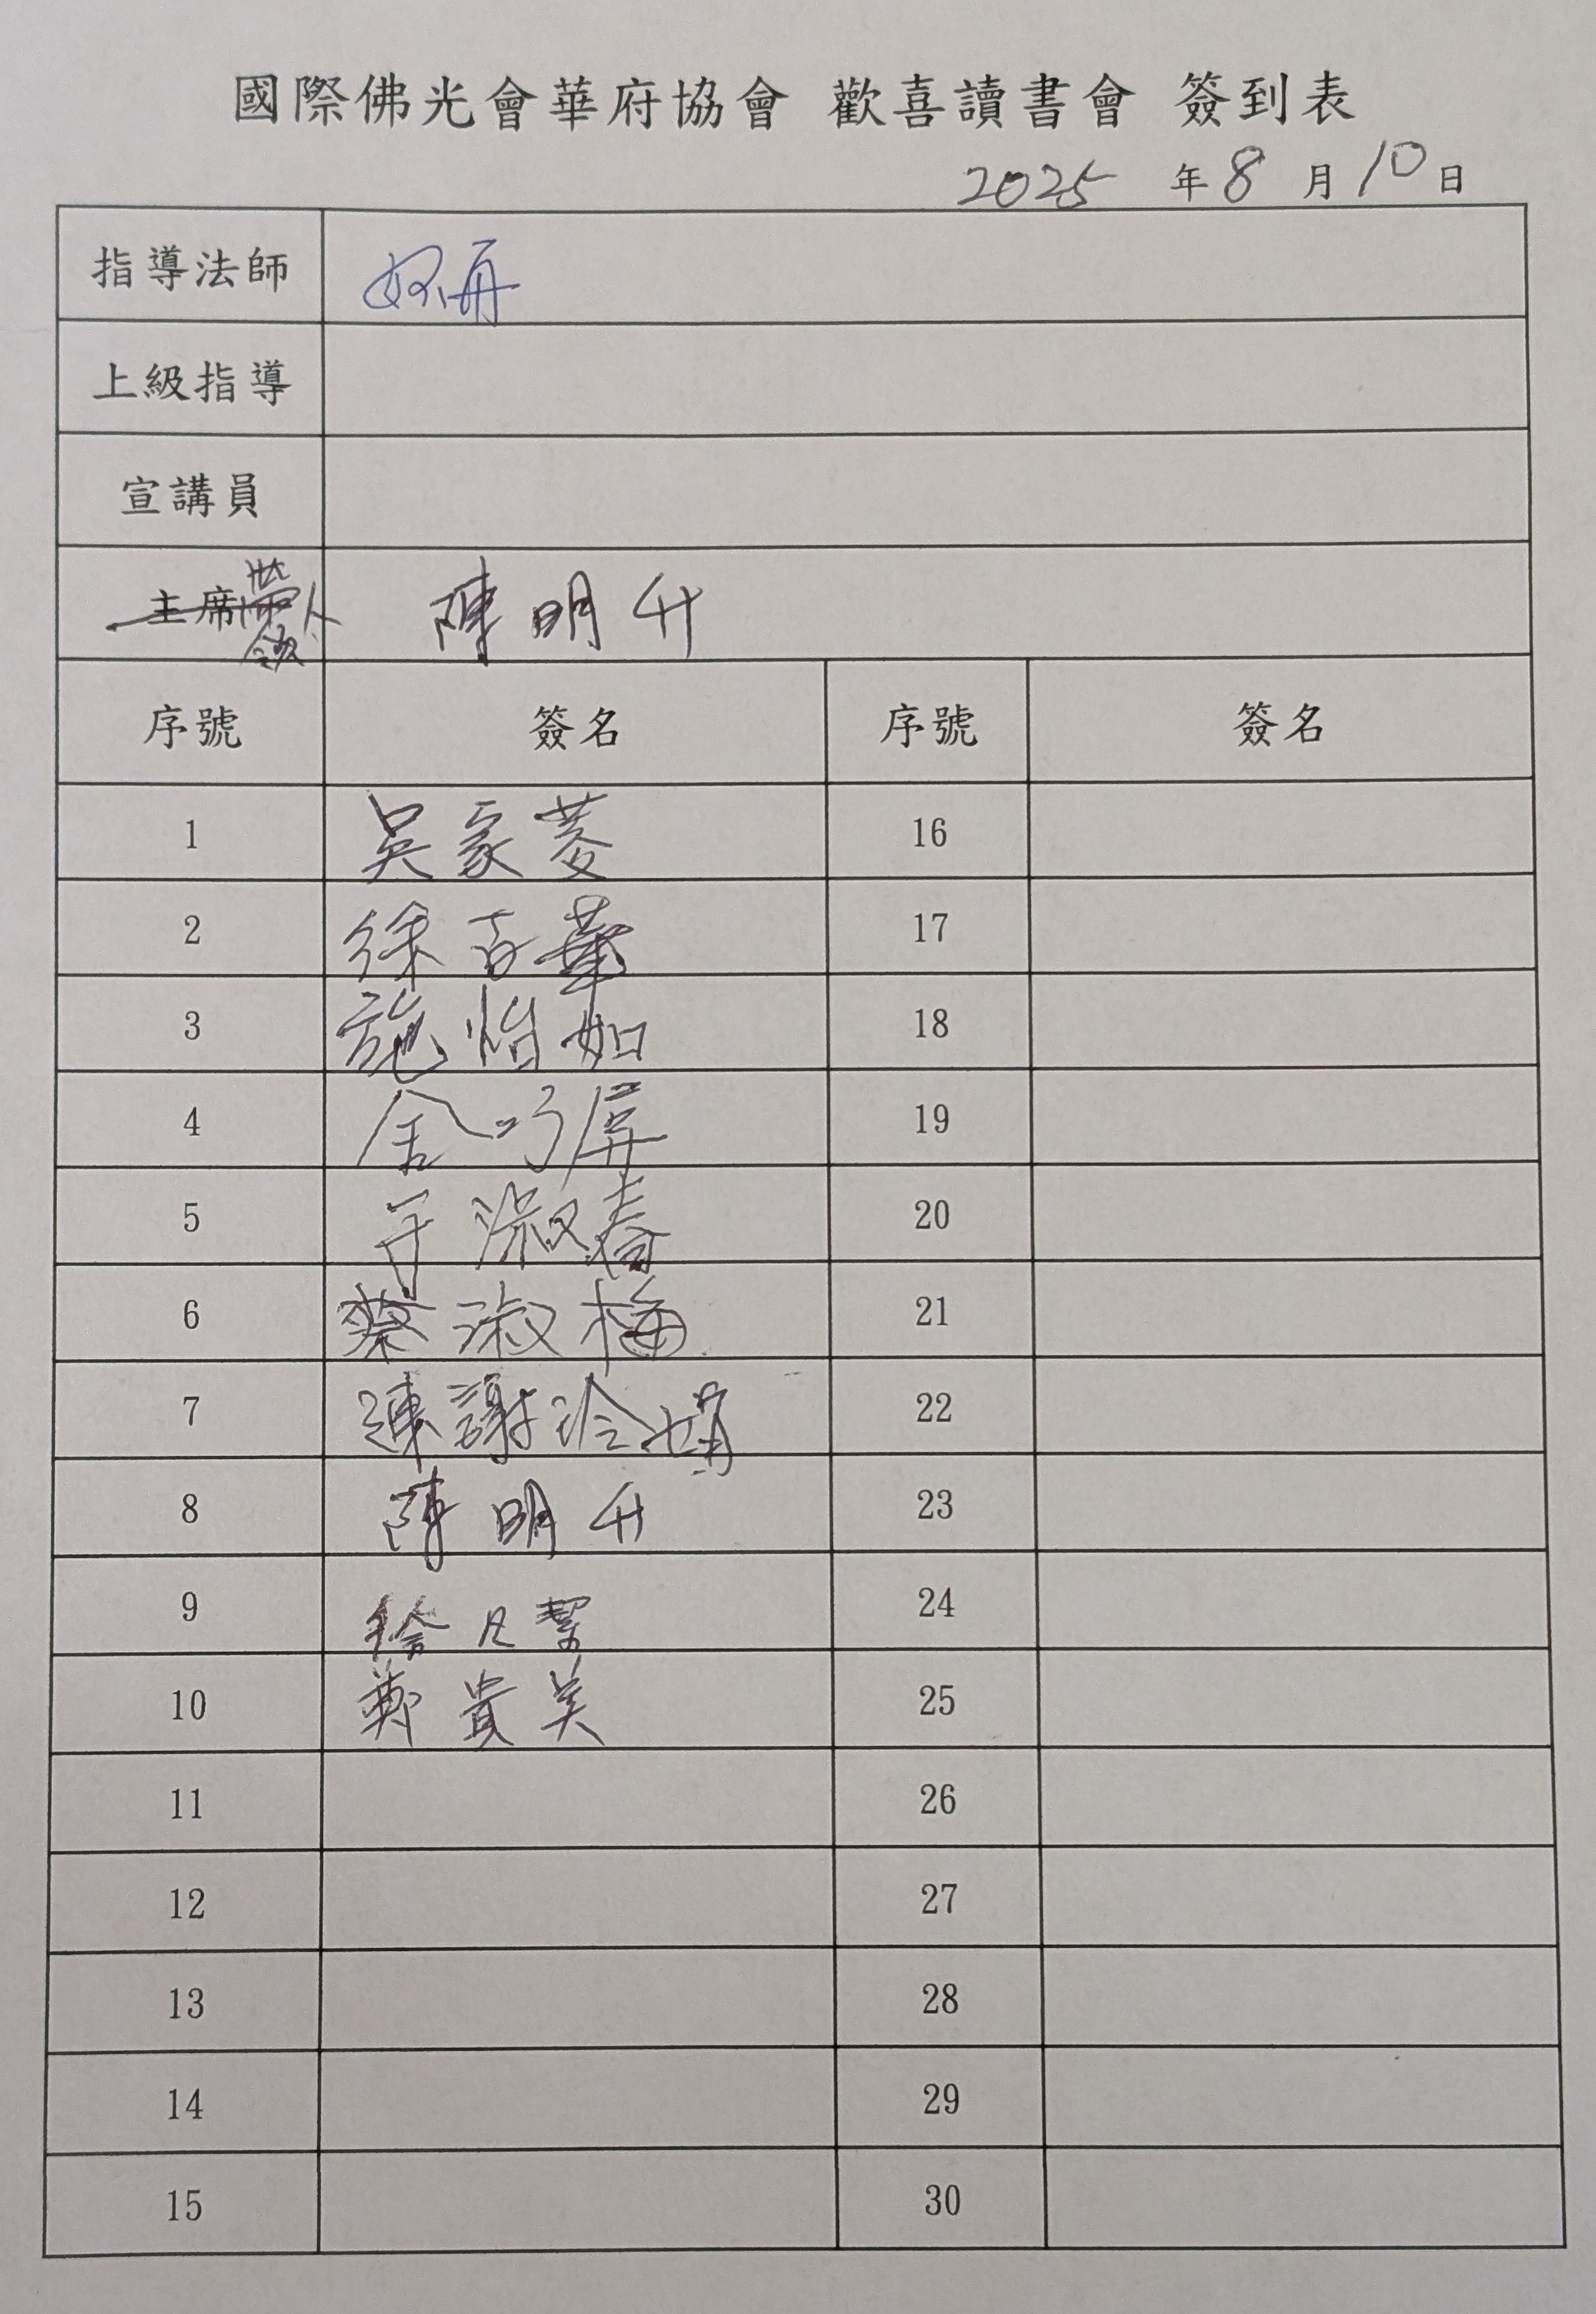 國際佛光會華府協會 歡喜讀書會 簽到表
2025 年 8 月 10 日
指導法師
上級指導
宣講員
主席 帶領人 陳明升
序號 簽名 序號 簽名
1 吳家菱 16
2 徐百華 17
3 施怡如 18
4 金巧屏 19
5 于淑春 20
6 蔡淑梅 21
7 連謝玲娟 22
8 陳明升 23
9 24
10 鄭貴美 25
11 26
12 27
13 28
14 29
15 30